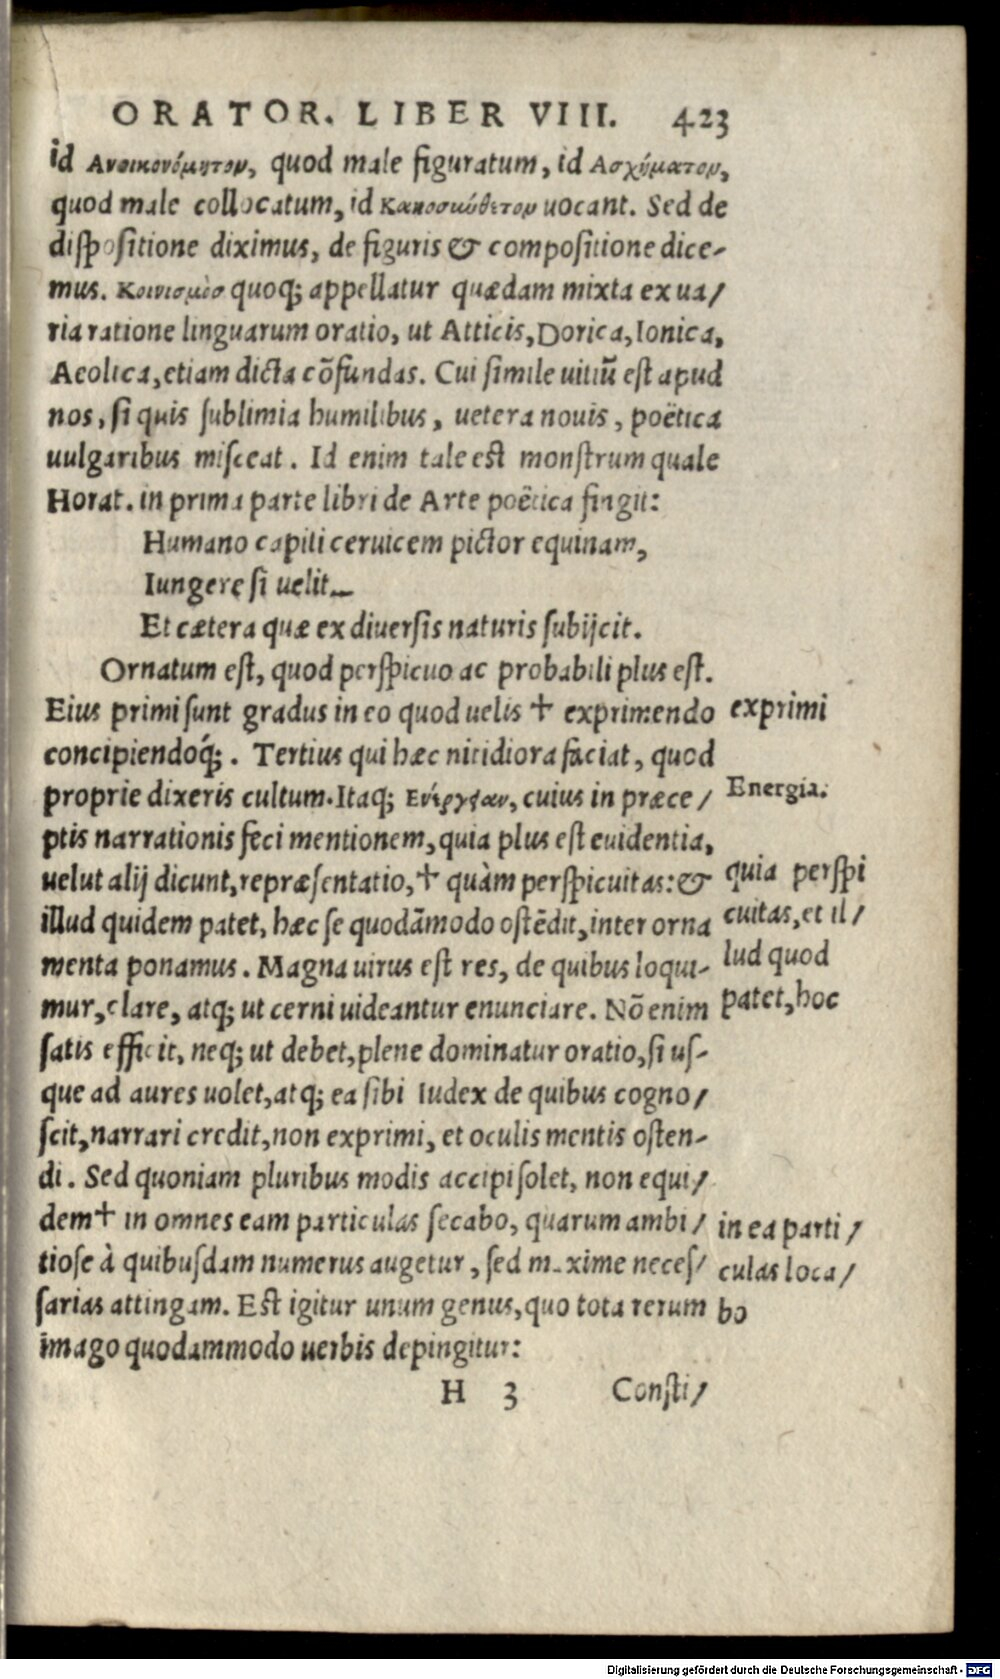 ORATOR. LIBER VIII. 423
id Ανοικονόμητον, quod male figuratum, id Ασχήματον,
quod male collocatum, id Κακοσύνθετον uocant. Sed de
dispositione diximus, de figuris & compositione dice-
mus. Κοινισμὸσ quoq; appellatur quædam mixta ex ua/
ria ratione linguarum oratio, ut Atticis, Dorica, Ionica,
Aeolica, etiam dicta cōfundas. Cui simile uitiū est apud
nos, si quis sublimia humilibus, uetera nouis, poëtica
uulgaribus misceat. Id enim tale est monstrum quale
Horat. in prima parte libri de Arte poëtica fingit:
Humano capiti ceruicem pictor equinam,
Iungere si uelit_
Et cætera quæ ex diuersis naturis subijcit.
Ornatum est, quod perspicuo ac probabili plus est.
Eius primi sunt gradus in eo quod uelis + exprimendo
exprimi
concipiendoq́;. Tertius qui hæc nitidiora faciat, quod
proprie dixeris cultum. Itaq; Ενέργειαν, cuius in præce/
Energia.
ptis narrationis feci mentionem, quia plus est euidentia,
uelut alij dicunt, repræsentatio, + quàm perspicuitas: &
quia perspi
illud quidem patet, hæc se quodāmodo ostēdit, inter orna
cuitas, et il/
menta ponamus. Magna uirus est res, de quibus loqui-
lud quod
mur, clare, atq; ut cerni uideantur enunciare. Nō enim
patet, hoc
satis efficit, neq; ut debet, plene dominatur oratio, si us-
que ad aures uolet, atq; ea sibi Iudex de quibus cogno/
scit, narrari credit, non exprimi, et oculis mentis osten-
di. Sed quoniam pluribus modis accipi solet, non equi/
dem + in omnes eam particulas secabo, quarum ambi/
in ea parti/
tiose à quibusdam numerus augetur, sed maxime neces/
culas loca/
sarias attingam. Est igitur unum genus, quo tota rerum
bo
imago quodammodo uerbis depingitur:
H 3 Consti/
Digitalisierung gefördert durch die Deutsche Forschungsgemeinschaft - DFG